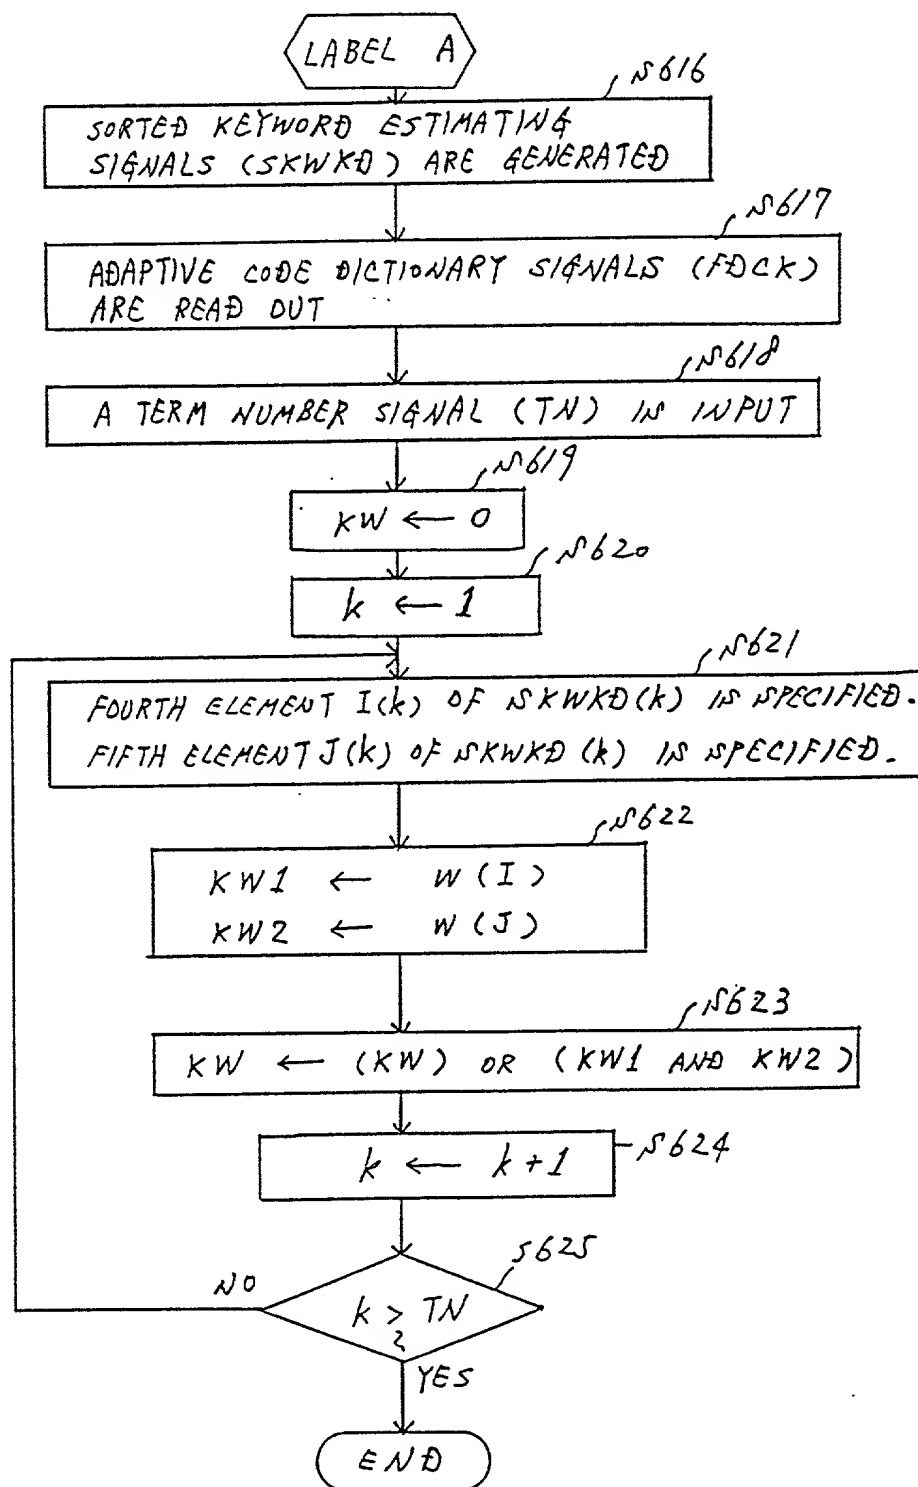 LABEL A
S616
SORTED KEYWORD ESTIMATING
SIGNALS (SKWKD) ARE GENERATED
S617
ADAPTIVE CODE DICTIONARY SIGNALS (FDCK)
ARE READ OUT
S618
A TERM NUMBER SIGNAL (TN) IS INPUT
S619
KW ← 0
S620
k ← 1
S621
FOURTH ELEMENT I(k) OF SKWKD(k) IS SPECIFIED.
FIFTH ELEMENT J(k) OF SKWKD(k) IS SPECIFIED.
S622
KW1 ← W(I)
KW2 ← W(J)
S623
KW ← (KW) OR (KW1 AND KW2)
S624
k ← k+1
S625
NO
k > TN
?
YES
END